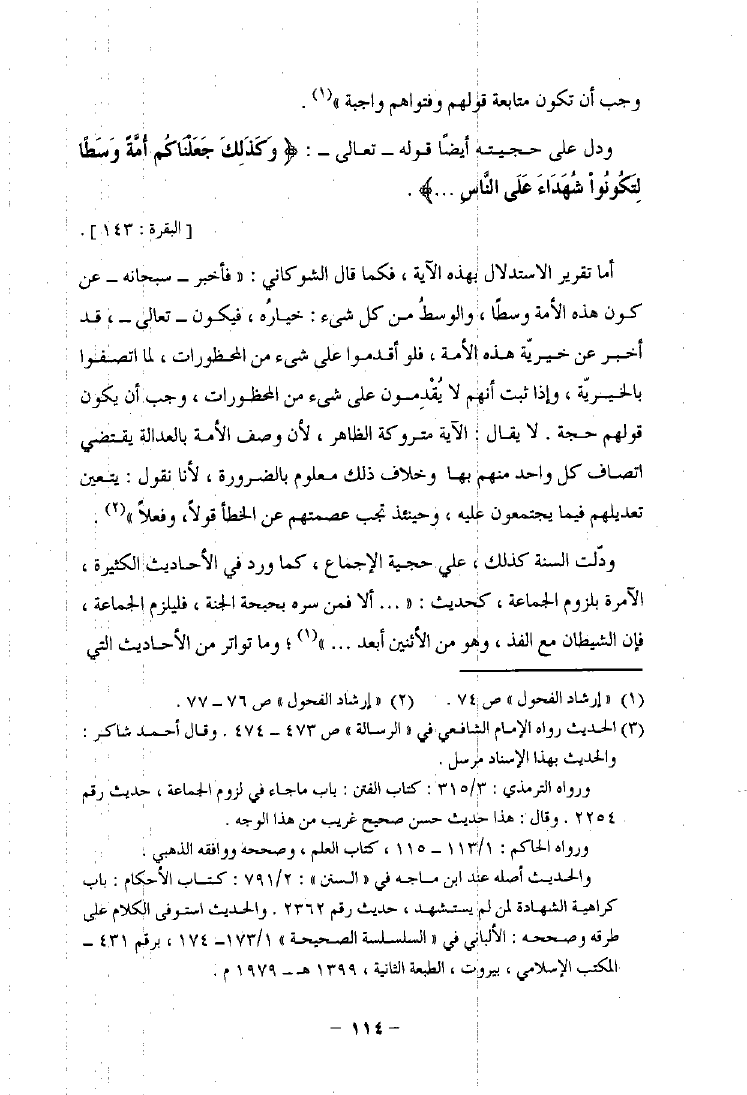 وجب أن تكون متابعة قولهم وفتواهم واجبة »(١) .
ودل على حجيته أيضًا قوله ــ تعالى ــ : ﴿ وَكَذَلِكَ جَعَلْنَاكُم أُمَّةً وَسَطًا
لِتَكُونُواْ شُهَدَاءَ عَلَى النَّاسِ ...﴾ .
[ البقرة : ١٤٣ ] .
أما تقرير الاستدلال بهذه الآية ، فكما قال الشوكاني : « فأخبر ــ سبحانه ــ عن
كون هذه الأمة وسطًا ، والوسطُ من كل شىء : خيارُه ، فيكون ــ تعالى ــ ، قد
أخبر عن خيريّة هذه الأمة ، فلو أقدموا على شىء من المحظورات ، لما اتصفوا
بالخيريّة ، وإذا ثبت أنهم لا يُقْدِمون على شىء من المحظورات ، وجب أن يكون
قولهم حجة . لا يقال : الآية متروكة الظاهر ، لأن وصف الأمة بالعدالة يقتضي
اتصاف كل واحد منهم بها وخلاف ذلك معلوم بالضرورة ، لأنا نقول : يتعين
تعديلهم فيما يجتمعون عليه ، وحينئذ تجب عصمتهم عن الخطأ قولاً، وفعلاً »(٢) .
ودلّت السنة كذلك ، علي حجية الإجماع ، كما ورد في الأحاديث الكثيرة ،
الآمرة بلزوم الجماعة ، كحديث : « ... ألا فمن سره بحبحة الجنة ، فليلزم الجماعة ،
فإن الشيطان مع الفذ ، وهو من الأثنين أبعد ... »(١) ؛ وما تواتر من الأحاديث التي
(١) « إرشاد الفحول » ص ٧٤ . (٢) « إرشاد الفحول » ص ٧٦ ــ ٧٧ .
(٣) الحديث رواه الإمام الشافعي في « الرسالة » ص ٤٧٣ ــ ٤٧٤ . وقال أحمد شاكر :
والحديث بهذا الإسناد مرسل .
ورواه الترمذي : ٣١٥/٣ : كتاب الفتن : باب ماجاء في لزوم الجماعة ، حديث رقم
٢٢٥٤ . وقال : هذا حديث حسن صحيح غريب من هذا الوجه .
ورواه الحاكم : ١١٣/١ ــ ١١٥ ، كتاب العلم ، وصححه ووافقه الذهبي .
والحديث أصله عند ابن ماجه في « السنن » : ٧٩١/٢ : كتاب الأحكام : باب
كراهية الشهادة لمن لم يستشهد ، حديث رقم ٢٣٦٢ . والحديث استوفى الكلام على
طرقه وصححه : الألباني في « السلسلة الصحيحة » ١٧٣/١ــ ١٧٤ ، برقم ٤٣١ ــ
المكتب الإسلامي ، بيروت ، الطبعة الثانية ، ١٣٩٩ هـ ــ ١٩٧٩ م .
– ١١٤ –